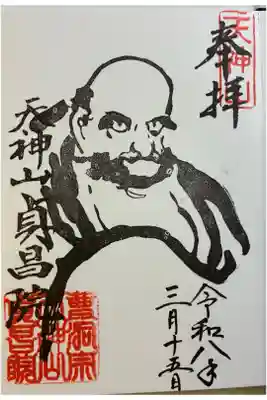 天神山
奉拝
令和八年
三月十五日
天神山貞昌院
曹洞宗
天神山
貞昌院